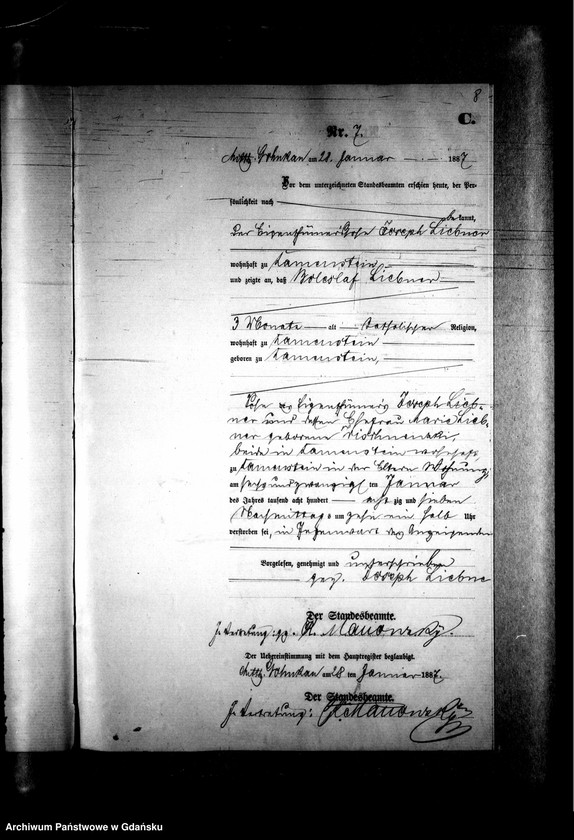 8
C.
Nr. 7.
Gohnkau am 28. Januar 1887
Vor dem unterzeichneten Standesbeamten erschien heute, der Per-
sönlichkeit nach
be kannt,
der Eigenthümer Joseph Liebner
wohnhaft zu Kamenstein
und zeigte an, daß Boleslaf Liebner
3 Monate alt katholischer Religion,
wohnhaft zu Kamenstein
geboren zu Kamenstein,
Sohn des Eigenthümers Joseph Lieb-
ner und dessen Ehefrau Marie Lieb,
ner geborene
beide in Kamenstein wohnhaft
zu Kamenstein in der Eltern Wohnung
am sechsundzwanzigsten Januar
des Jahres tausend acht hundert acht zig und sieben
Nachmittags um zehn ein halb Uhr
verstorben sei, in Gegenwart des Anzeigenden
Vorgelesen, genehmigt und unterschrieben
gez. Joseph Liebner
Der Standesbeamte.
In Vertretung: gez. A. Manowsky.
Der Uebereinstimmung mit dem Hauptregister beglaubigt.
Gohnkau am 28 ten Januar 1887.
Der Standesbeamte.
In Vertretung: A. Manowsky
Archiwum Państwowe w Gdańsku